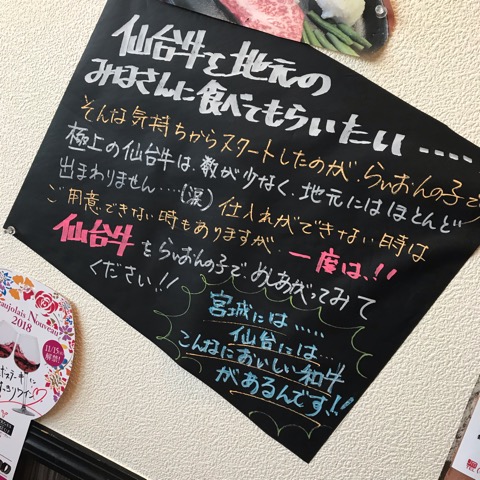 仙台牛を地元の
みなさんに食べてもらいたい‥‥
そんな気持ちからスタートしたのが、らいおんの子で
極上の仙台牛は、数が少なく、地元にはほとんど
出まわりません‥‥(涙) 仕入れができない時は
ご用意できない時もありますが、一度は、!!
仙台牛をらいおんの子で、めしあがってみて
ください!!
宮城には‥‥
仙台には…
こんなにおいしい和牛
があるんです!!
eaujolais Nouveau
2018
11/15
解禁!